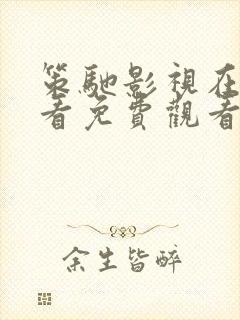 策馳影視在
看免費觀看
余生皆醉